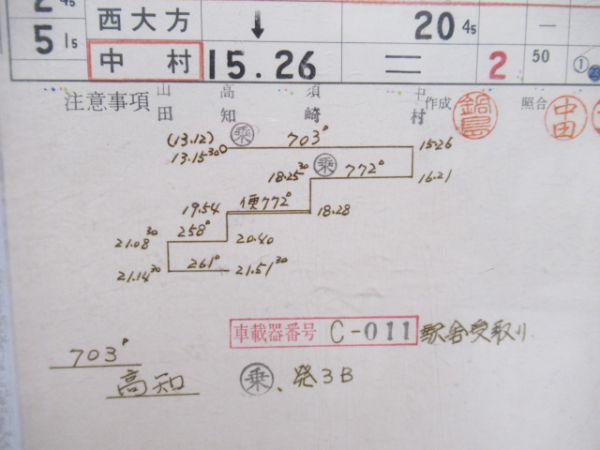 西大方 ↓ 20 45 —
5 15 中村 15.26 = 2 50 ①
注意事項 山田 高知 須崎 中村 作成 鍋島 照合 中田
(13.12) 乗 703° 15.26
13.15 30 18.25 30 乗 772° 16.21
19.54 便772° 18.28
21.08 30 258° 20.40
21.14 30 261° 21.51 30
車載器番号 C-011 駅舎受取り
703°
高知 乗、発3B